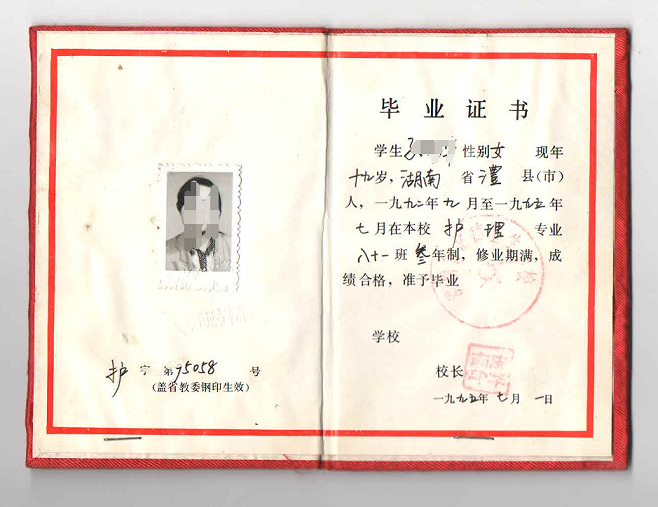 护字第75058号
(盖省教委钢印生效)
毕业证书
学生 性别女 现年
十九岁，湖南省澧县(市)
人，一九九二年九月至一九九五年
七月在本校护理专业
八十一班叁年制，修业期满，成
绩合格，准予毕业
学校
校长
一九九五年七月一日